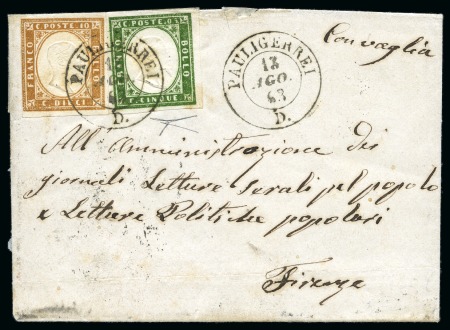 C. POSTE 10
FRANCO
C. DIECI
C. POSTE 05
BOLLO
C. CINQUE
PAULIGERREI
D.
PAULIGERREI
13
AGO.
63
D.
Con vaglia
All'Amministrazione dei
giornali Letture Serali pel popolo
e Letture Politiche popolari
Firenze